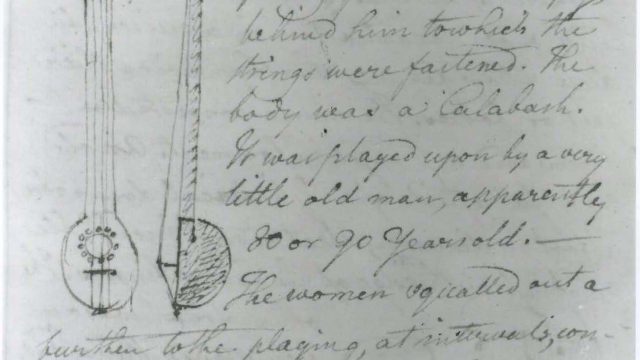 behind him to which the
strings were fastened. The
body was a Calabash.
It was played upon by a very
little old man, apparently
80 or 90 Years old. —
The women squalled out a
burthen to the playing, at intervals, con-